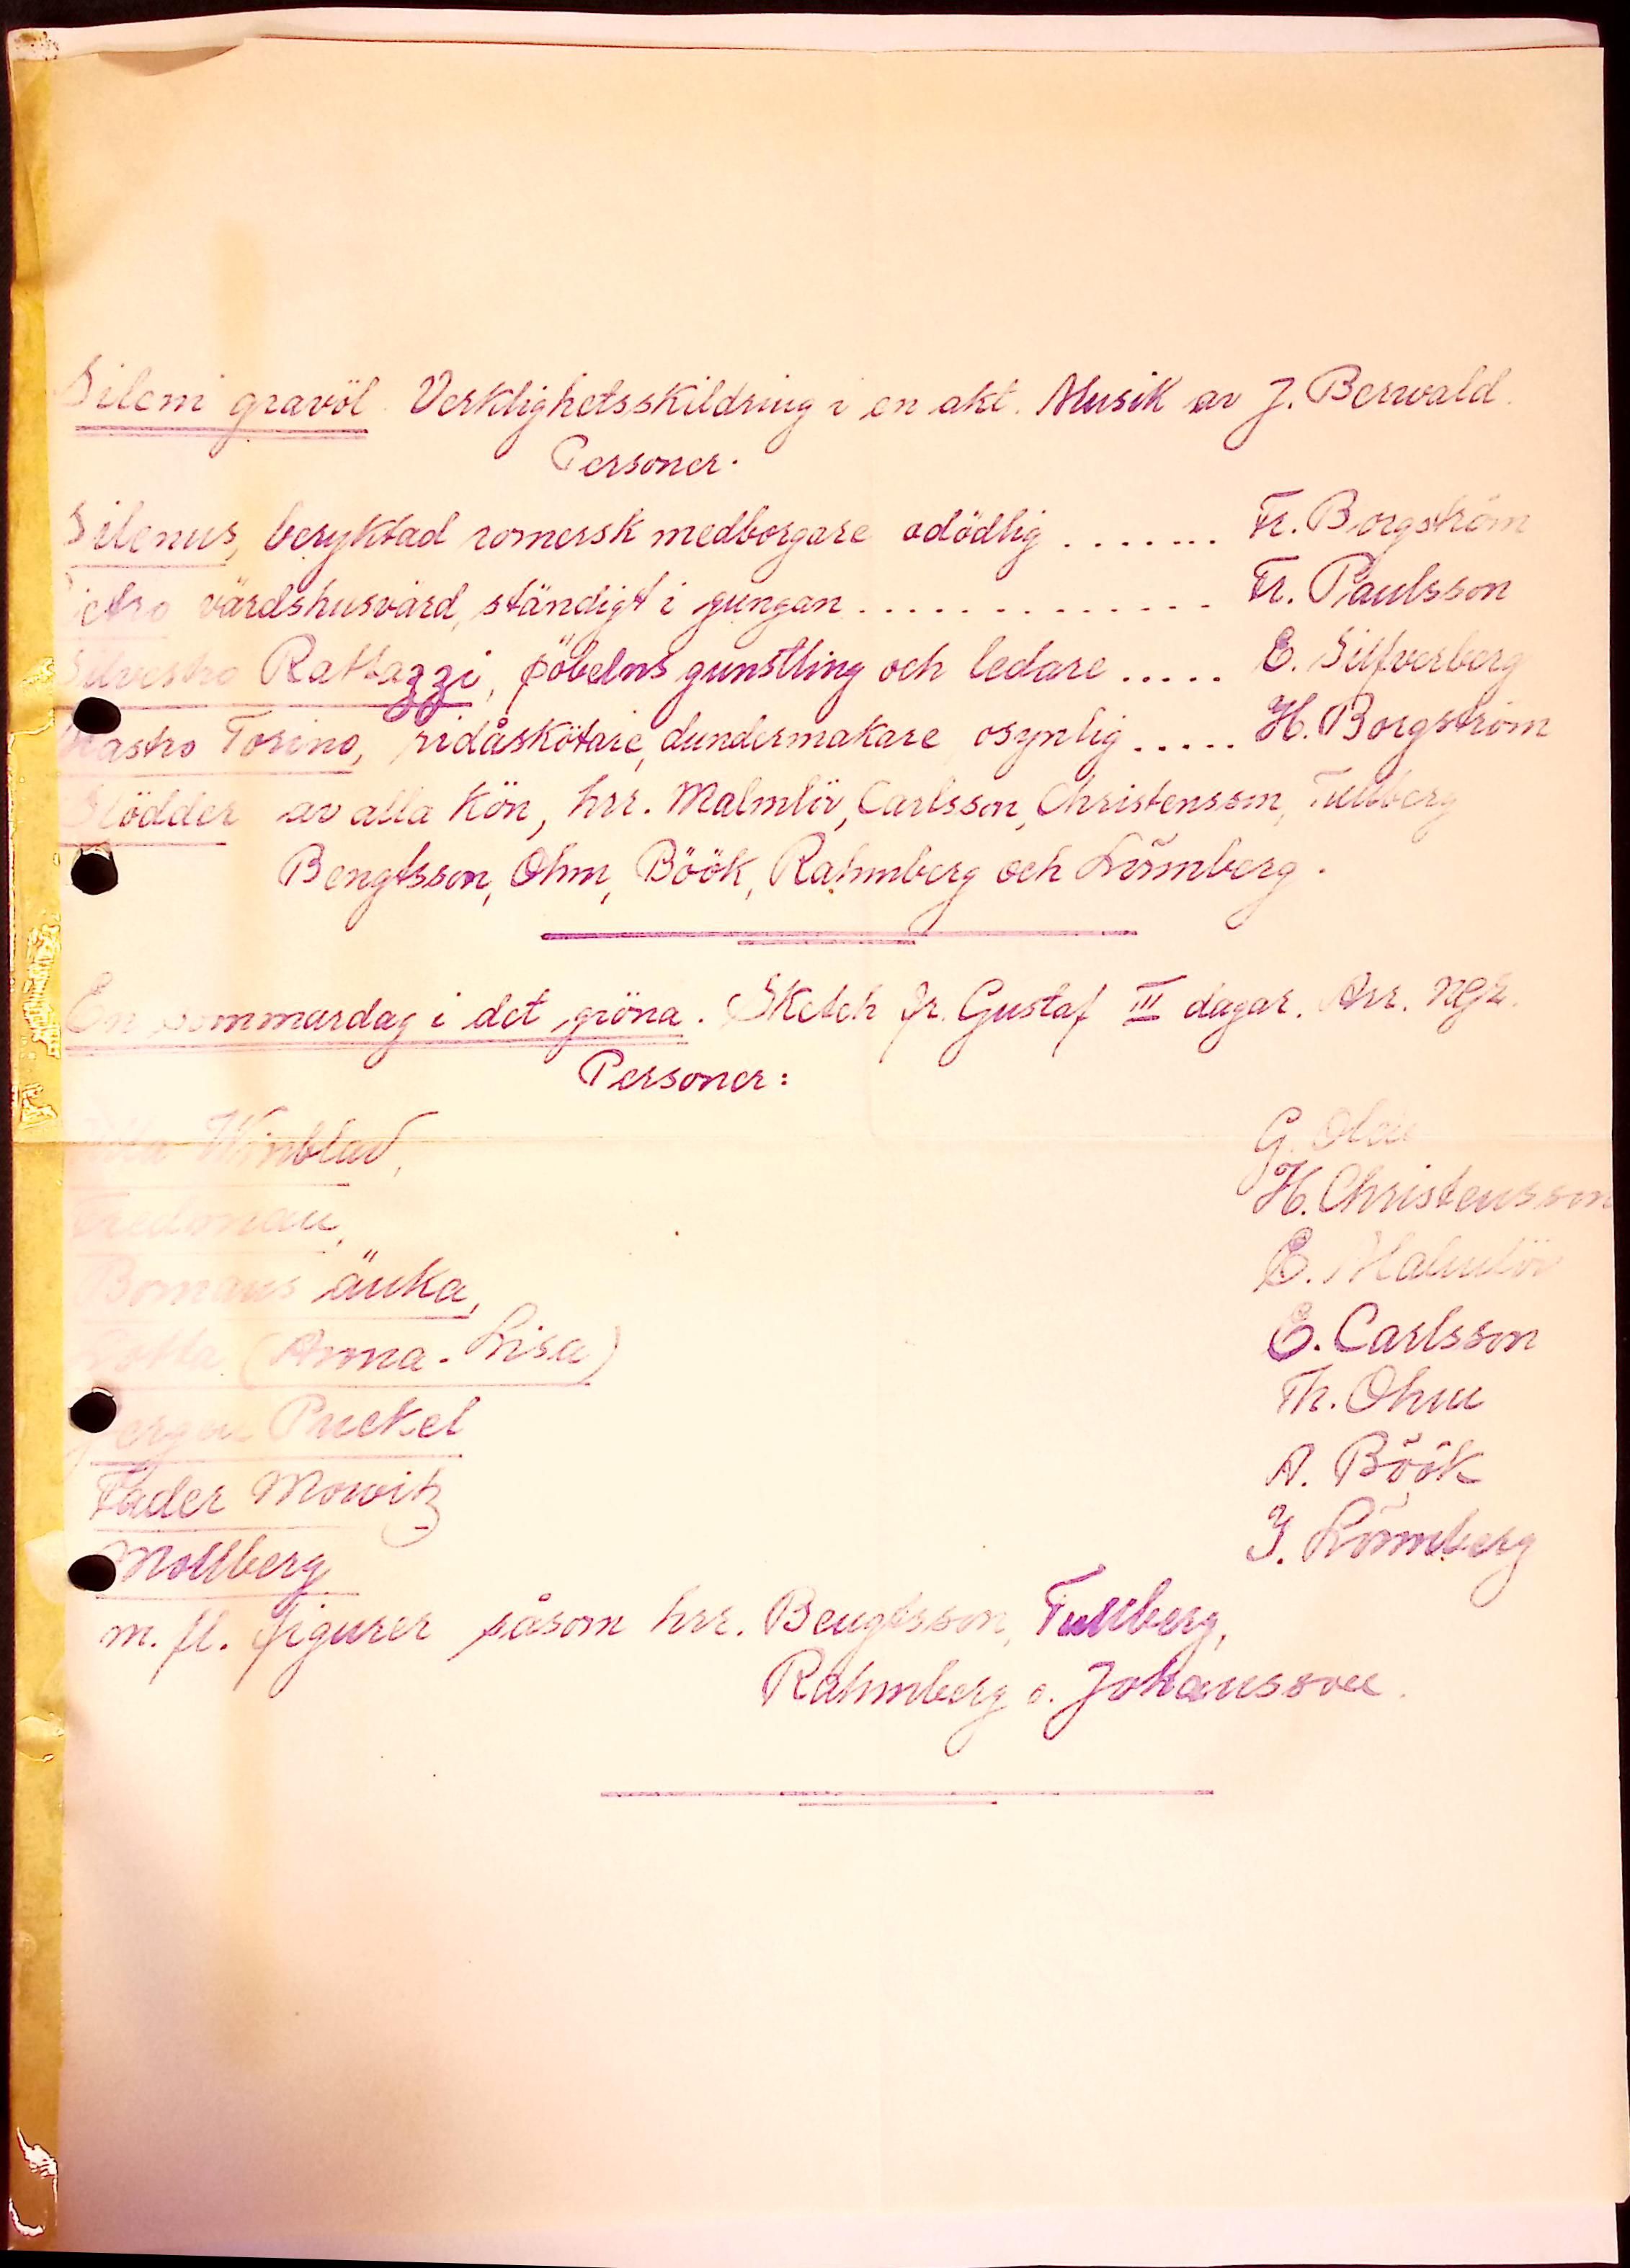 Sileni gravöl. Verklighetsskildring i en akt. Musik av J. Berwald.
Personer.
Silenus, beryktad romersk medborgare odödlig ....... Fr. Borgström
värdshusvärd, ständigt i gungan .............. Fr. Paulsson
Silvestro Rattazzi, pöbelns gunstling och ledare ..... E. Silfverberg
Mastro Torino, ridåskötare, dundermakare, osynlig ..... H. Borgström
Slödder av alla kön, hrr. Malmlöv, Carlsson, Christensson, Tullberg
Bengtsson, Ohm, Böök, Rahmberg och Lönnberg.
En sommardag i det gröna. Sketch fr. Gustaf III dagar. Arr. ngr.
Personer:
Ulla Winblad, G.
Fredman, H. Christensson
Bomans änka, E. Malmlöv
(Anna-Lisa) E. Carlsson
Puckel Th. Ohm
Fader Mowitz A. Böök
Mollberg J. Lönnberg
m. fl. figurer såsom hrr. Bengtsson, Tullberg,
Rahmberg o. Johansson.